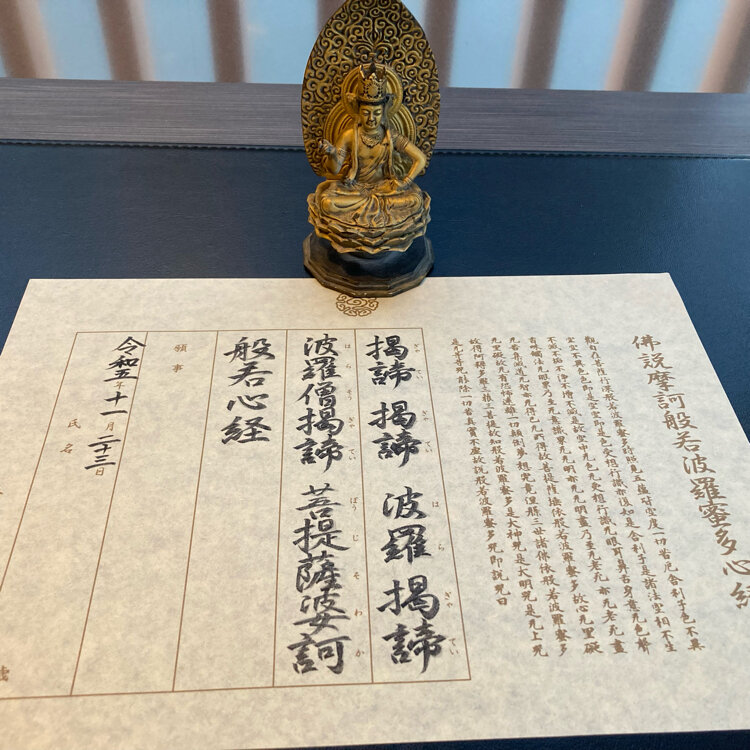 佛説摩訶般若波羅蜜多心経
觀自在菩薩行深般若波羅蜜多時照見五蘊皆空度一切苦厄舍利子色不異
空空不異色色即是空空即是色受想行識亦復如是舍利子是諸法空相不生
不滅不垢不浄不増不減是故空中无色无受想行識无眼耳鼻舌身意无色聲
香味觸法无眼界乃至无意識界无无明亦无无明盡乃至无老死亦无老死盡
无苦集滅道无智亦无得以无所得故菩提薩埵依般若波羅蜜多故心无罣礙
无罣礙故无有恐怖遠離一切顛倒夢想究竟涅槃三世諸佛依般若波羅蜜多
故得阿耨多羅三藐三菩提故知般若波羅蜜多是大神咒是大明咒是无上咒
是无等等咒能除一切苦真實不虚故説般若波羅蜜多咒即説咒曰
ぎゃてい ぎゃてい はらぎゃてい
揭諦 揭諦 波羅揭諦
はらそうぎゃてい ぼうじそわか
波羅僧揭諦 菩提薩婆訶
般若心経
願事
令和五年十一月二十三日
氏名